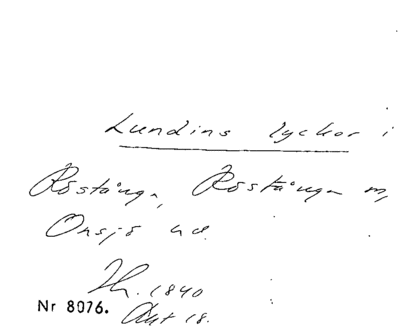 Lundins lyckor i
Röstånga, Röstånga m,
Onsjö hd.
Th. 1840
Nr 8076. Akt 18.